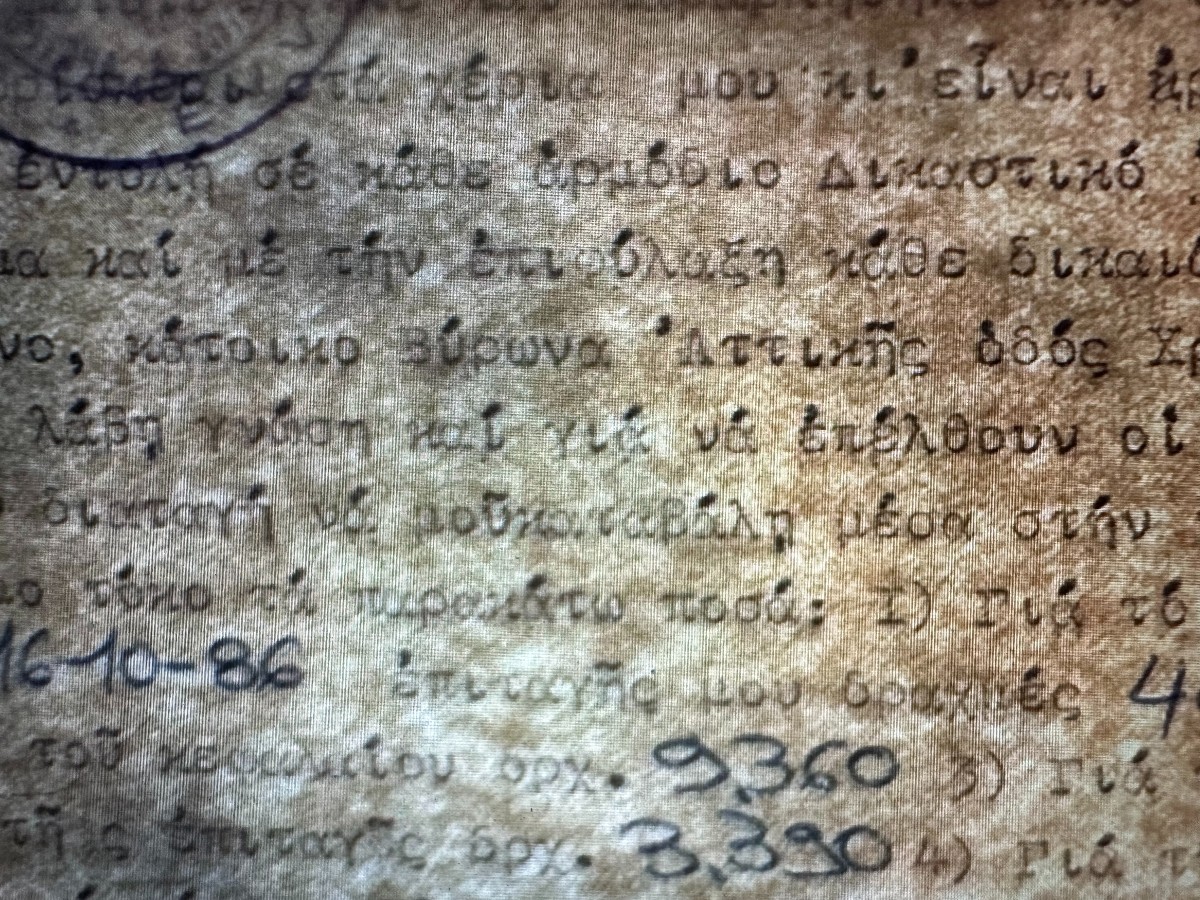 στά χέρια μου κι' εἶναι
ἐντολή σέ κάθε ἁρμόδιο Δικαστικό
καί μέ τήν ἐπιφύλαξη κάθε δικαιώ
νο, κάτοικο Βύρωνα Ἀττικῆς ὁδός Χρ
λάβη γνώση καί γιά νά ἐπέλθουν οἱ
διαταγή νά μοῦκαταβάλη μέσα στήν
μο τόκο τά παρακάτω ποσά: Ι) Γιά τό
16-10-86 ἐπιταγῆς μου δραχμές 4
τοῦ κεφαλαίου δρχ. 9.360 3) Γιά
τῆς ἐπιταγῆς δρχ. 3.390 4) Γιά τ